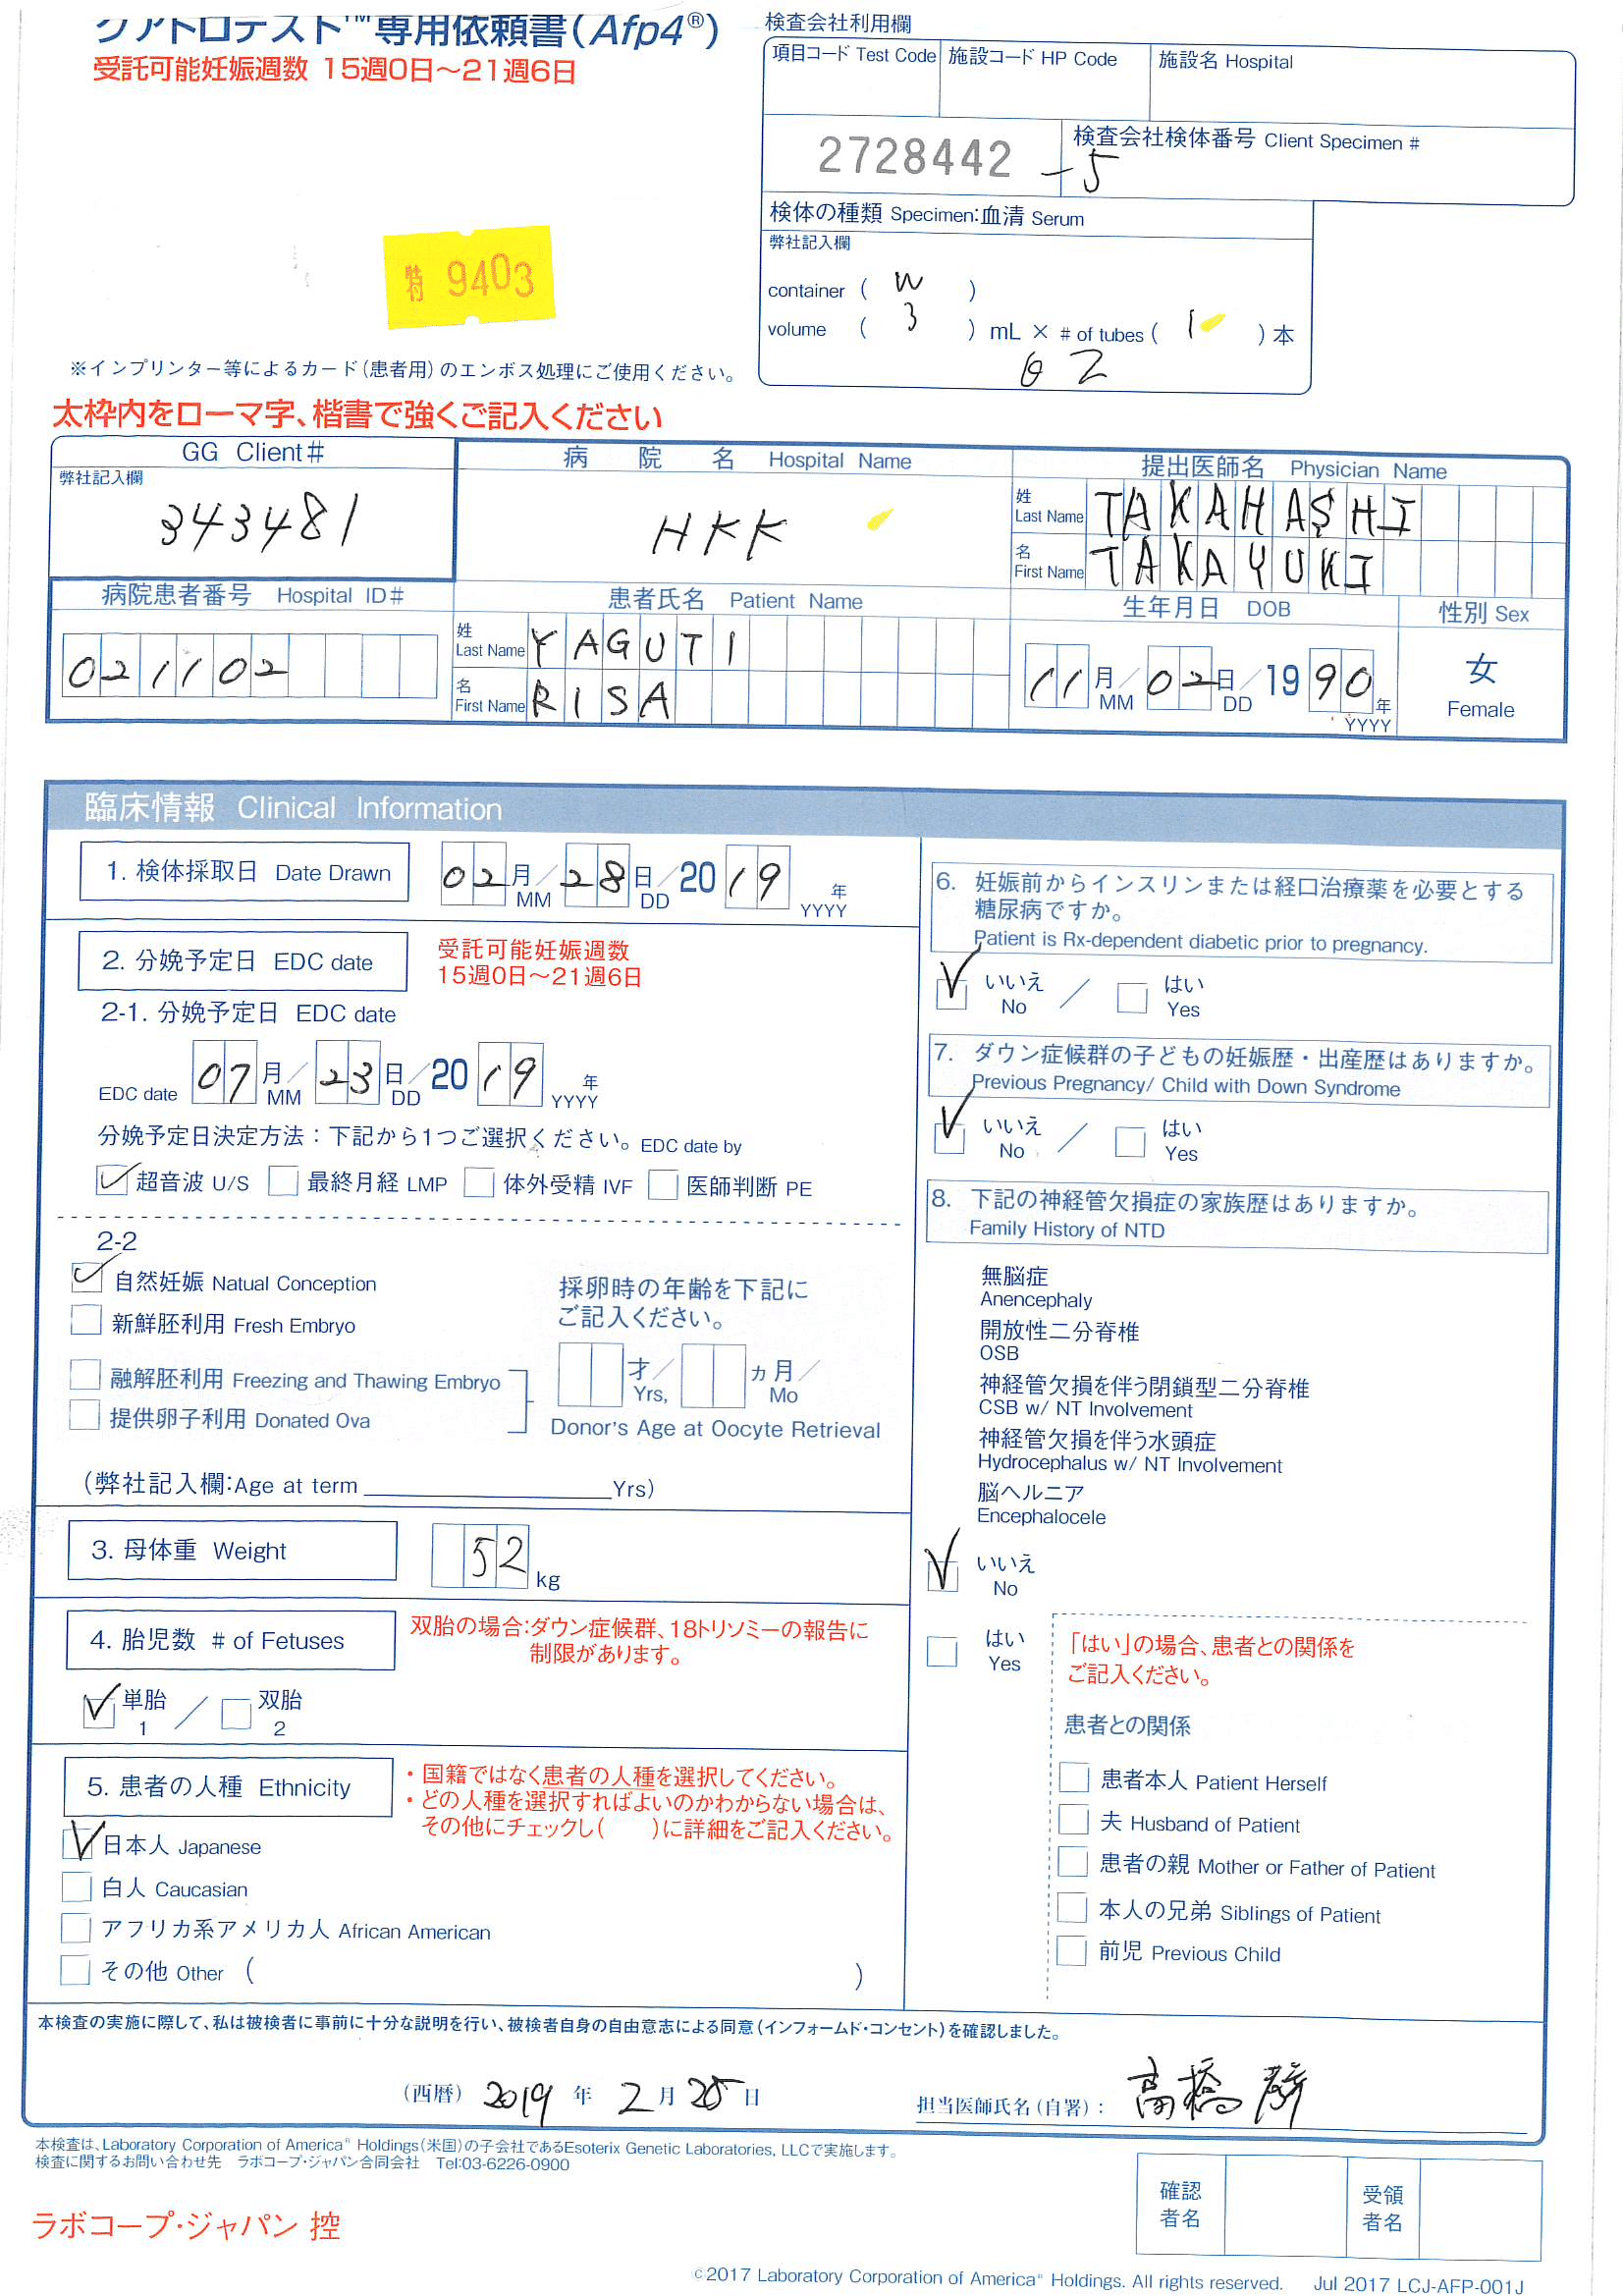 クアトロテスト™専用依頼書(Afp4®)
受託可能妊娠週数 15週0日～21週6日
検査会社利用欄
項目コード Test Code 施設コード HP Code 施設名 Hospital
2728442 -5
検査会社検体番号 Client Specimen #
検体の種類 Specimen:血清 Serum
弊社記入欄
container ( W )
volume ( 3 ) mL × # of tubes ( 1 ) 本
特 9403
※インプリンター等によるカード(患者用)のエンボス処理にご使用ください。
太枠内をローマ字、楷書で強くご記入ください
GG Client# 病院名 Hospital Name 提出医師名 Physician Name
弊社記入欄
343481
HKK
姓 Last Name TAKAHASHI
名 First Name TAKAYUKI
病院患者番号 Hospital ID# 患者氏名 Patient Name 生年月日 DOB 性別 Sex
021102
姓 Last Name YAGUTI
名 First Name RISA
11月/02日/1990年
MM DD YYYY
女
Female
臨床情報 Clinical Information
1. 検体採取日 Date Drawn 02月/28日/2019年
MM DD YYYY
2. 分娩予定日 EDC date
受託可能妊娠週数
15週0日～21週6日
2-1. 分娩予定日 EDC date
EDC date 07月/23日/2019年
MM DD YYYY
分娩予定日決定方法：下記から1つご選択ください。EDC date by
超音波 U/S 最終月経 LMP 体外受精 IVF 医師判断 PE
2-2
自然妊娠 Natual Conception
新鮮胚利用 Fresh Embryo
融解胚利用 Freezing and Thawing Embryo
提供卵子利用 Donated Ova
採卵時の年齢を下記に
ご記入ください。
才/ ヵ月/
Yrs, Mo
Donor's Age at Oocyte Retrieval
(弊社記入欄:Age at term Yrs)
3. 母体重 Weight 52 kg
4. 胎児数 # of Fetuses
双胎の場合:ダウン症候群、18トリソミーの報告に
制限があります。
単胎 / 双胎
1 2
5. 患者の人種 Ethnicity
・国籍ではなく患者の人種を選択してください。
・どの人種を選択すればよいのかわからない場合は、
その他にチェックし( )に詳細をご記入ください。
日本人 Japanese
白人 Caucasian
アフリカ系アメリカ人 African American
その他 Other ( )
6. 妊娠前からインスリンまたは経口治療薬を必要とする
糖尿病ですか。
Patient is Rx-dependent diabetic prior to pregnancy.
いいえ / はい
No Yes
7. ダウン症候群の子どもの妊娠歴・出産歴はありますか。
Previous Pregnancy/ Child with Down Syndrome
いいえ / はい
No Yes
8. 下記の神経管欠損症の家族歴はありますか。
Family History of NTD
無脳症
Anencephaly
開放性二分脊椎
OSB
神経管欠損を伴う閉鎖型二分脊椎
CSB w/ NT Involvement
神経管欠損を伴う水頭症
Hydrocephalus w/ NT Involvement
脳ヘルニア
Encephalocele
いいえ
No
はい
Yes
「はい」の場合、患者との関係を
ご記入ください。
患者との関係
患者本人 Patient Herself
夫 Husband of Patient
患者の親 Mother or Father of Patient
本人の兄弟 Siblings of Patient
前児 Previous Child
本検査の実施に際して、私は被検者に事前に十分な説明を行い、被検者自身の自由意志による同意(インフォームド・コンセント)を確認しました。
(西暦) 2019 年 2 月 日
担当医師氏名(自署)： 高橋
本検査は、Laboratory Corporation of America® Holdings(米国)の子会社であるEsoterix Genetic Laboratories, LLCで実施します。
検査に関するお問い合わせ先 ラボコープ・ジャパン合同会社 Tel:03-6226-0900
ラボコープ・ジャパン 控
確認者名 受領者名
©2017 Laboratory Corporation of America® Holdings. All rights reserved. Jul 2017 LCJ-AFP-001J